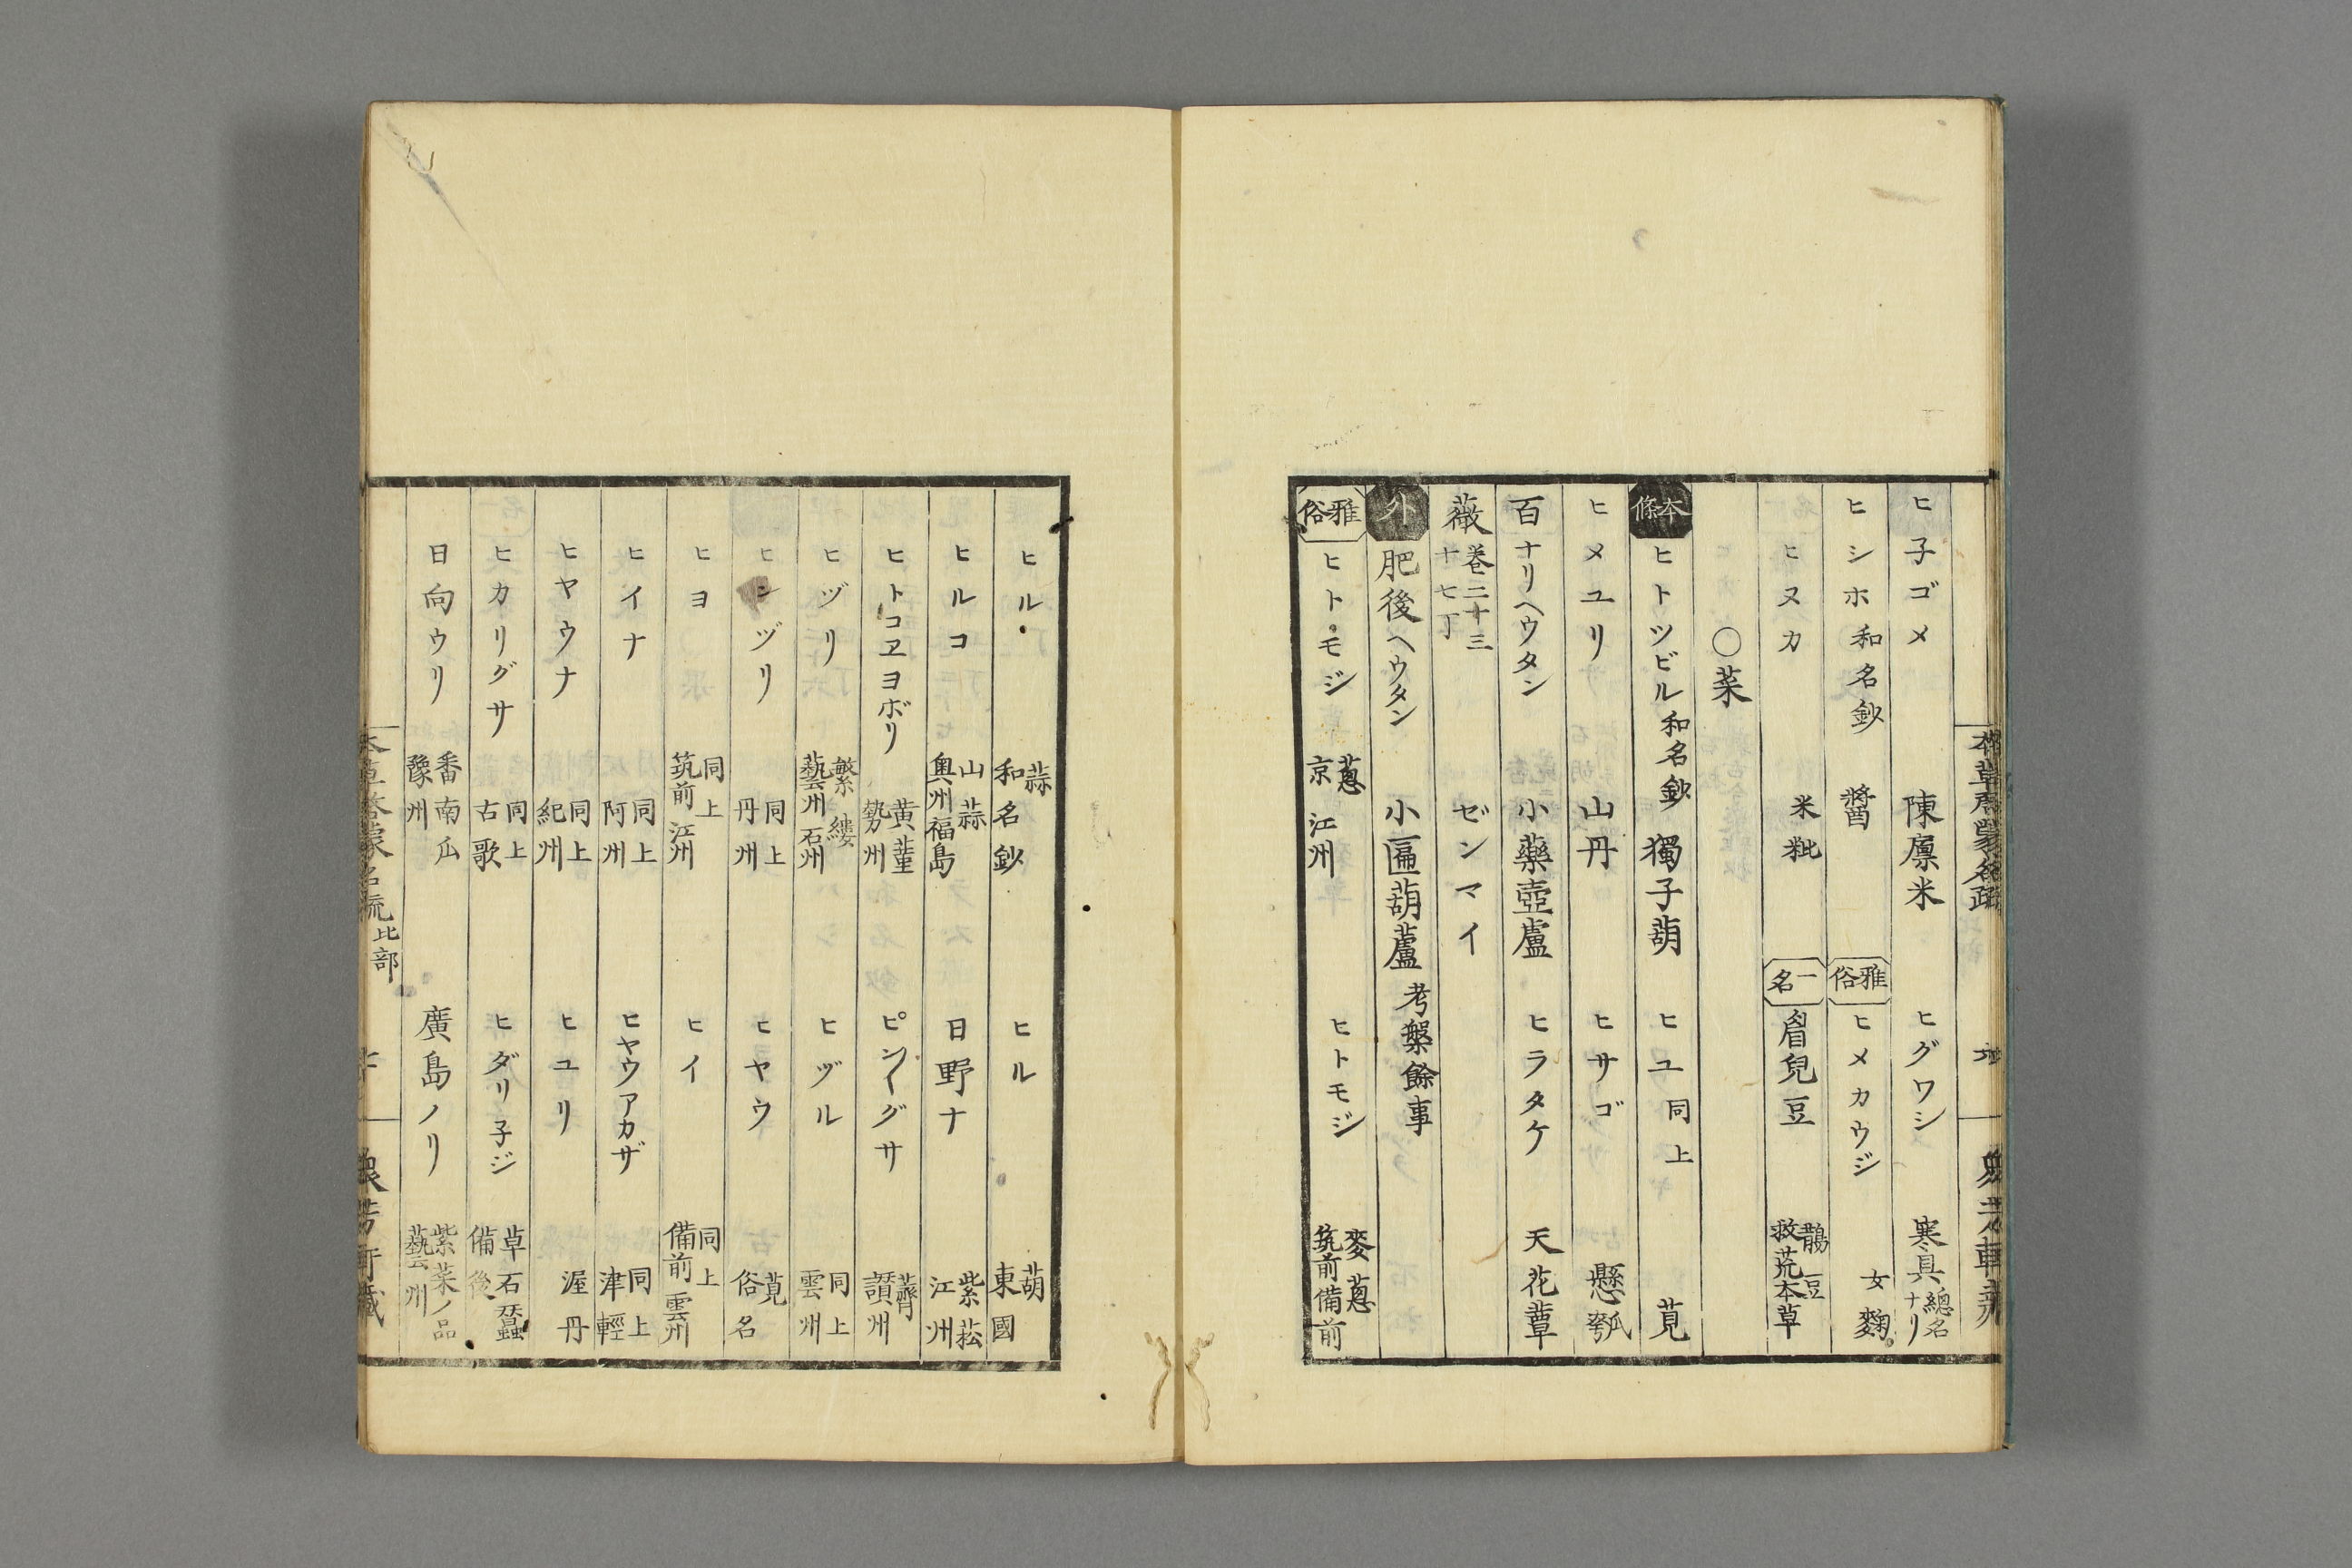 ヒ子ゴメ　陳廩米　ヒグワシ　寒具總名ナリ
ヒシホ和名鈔　醬　雅俗　ヒメカウジ　女麴
ヒヌカ　米粃　一名　眉兒豆　鵲豆救荒本草
〇菜
本條　ヒトツビル和名鈔　獨子葫　ヒユ同上　莧
ヒメユリ　山丹　ヒサゴ　懸瓠
百ナリヘウタン　小藥壺盧　ヒラタケ　天花蕈
薇卷二十三十七丁　ゼンマイ
外　肥後ヘウタン　小匾葫蘆考槃餘事
雅俗　ヒトモジ　葱京江州　ヒトモジ　麥葱筑前備前
ヒル　蒜和名鈔　ヒル　葫東國
ヒルコ　山蒜奥州福島　日野ナ　紫菘江州
ヒトコヱヨボリ　黄菫勢州　ピン〱グサ　薺讃州
ヒヅリ　繁縷藝州石州　ヒヅル　同上雲州
ヒンヅリ　同上丹州　ヒヤウ　莧俗名
ヒヨ　同上筑前江州　ヒイ　同上備前雲州
ヒイナ　同上阿州　ヒヤウアカザ　同上津輕
ヒヤウナ　同上紀州　ヒユリ　渥丹
ヒカリグサ　同上古歌　ヒダリ子ジ　草石蠶備後
日向ウリ　番南瓜豫州　廣島ノリ　紫菜ノ品藝州
本草啓蒙名疏　比部